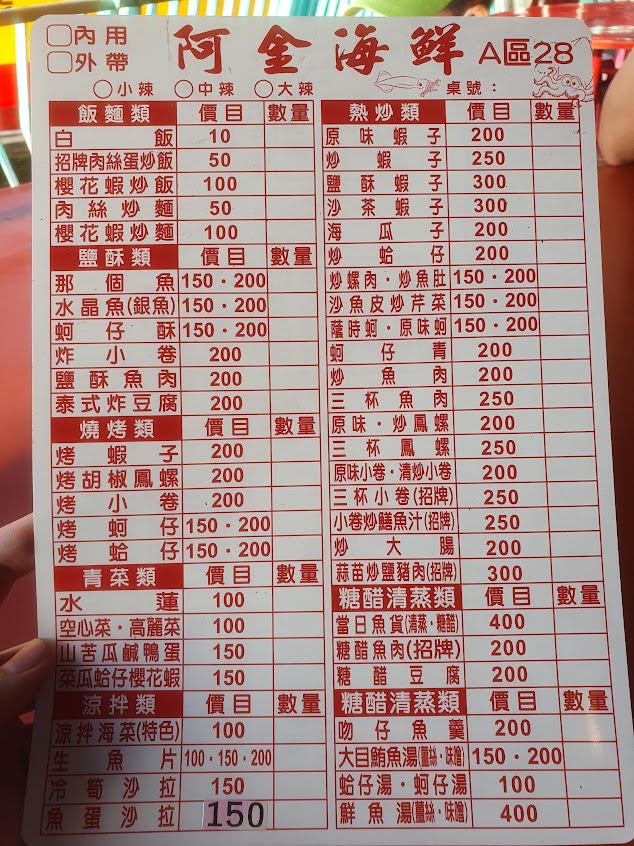 內用
外帶
阿金海鮮 A區28
小辣 中辣 大辣 桌號：
飯麵類 價目 數量
白飯 10
招牌肉絲蛋炒飯 50
櫻花蝦炒飯 100
肉絲炒麵 50
櫻花蝦炒麵 100
鹽酥類 價目 數量
那個魚 150·200
水晶魚(銀魚) 150·200
蚵仔酥 150·200
炸小卷 200
鹽酥魚肉 200
泰式炸豆腐 200
燒烤類 價目 數量
烤蝦子 200
烤胡椒鳳螺 200
烤小卷 200
烤蚵仔 150·200
烤蛤仔 150·200
青菜類 價目 數量
水蓮 100
空心菜·高麗菜 100
山苦瓜鹹鴨蛋 150
菜瓜蛤仔櫻花蝦 150
涼拌類 價目 數量
涼拌海菜(特色) 100
生魚片 100·150·200
冷筍沙拉 150
魚蛋沙拉 150
熱炒類 價目 數量
原味蝦子 200
炒蝦子 250
鹽酥蝦子 300
沙茶蝦子 300
海瓜子 200
炒蛤仔 200
炒螺肉·炒魚肚 150·200
沙魚皮炒芹菜 150·200
蔭時蚵·原味蚵 150·200
蚵仔青 200
炒魚肉 200
三杯魚肉 250
原味·炒鳳螺 200
三杯鳳螺 250
原味小卷·清炒小卷 200
三杯小卷(招牌) 250
小卷炒鱔魚汁(招牌) 250
炒大腸 200
蒜苗炒鹽豬肉(招牌) 300
糖醋清蒸類 價目 數量
當日魚貨(清蒸·糖醋) 400
糖醋魚肉(招牌) 200
糖醋豆腐 200
糖醋清蒸類 價目 數量
吻仔魚羹 200
大目鮪魚湯(薑絲·味噌) 150·200
蛤仔湯·蚵仔湯 100
鮮魚湯(薑絲·味噌) 400